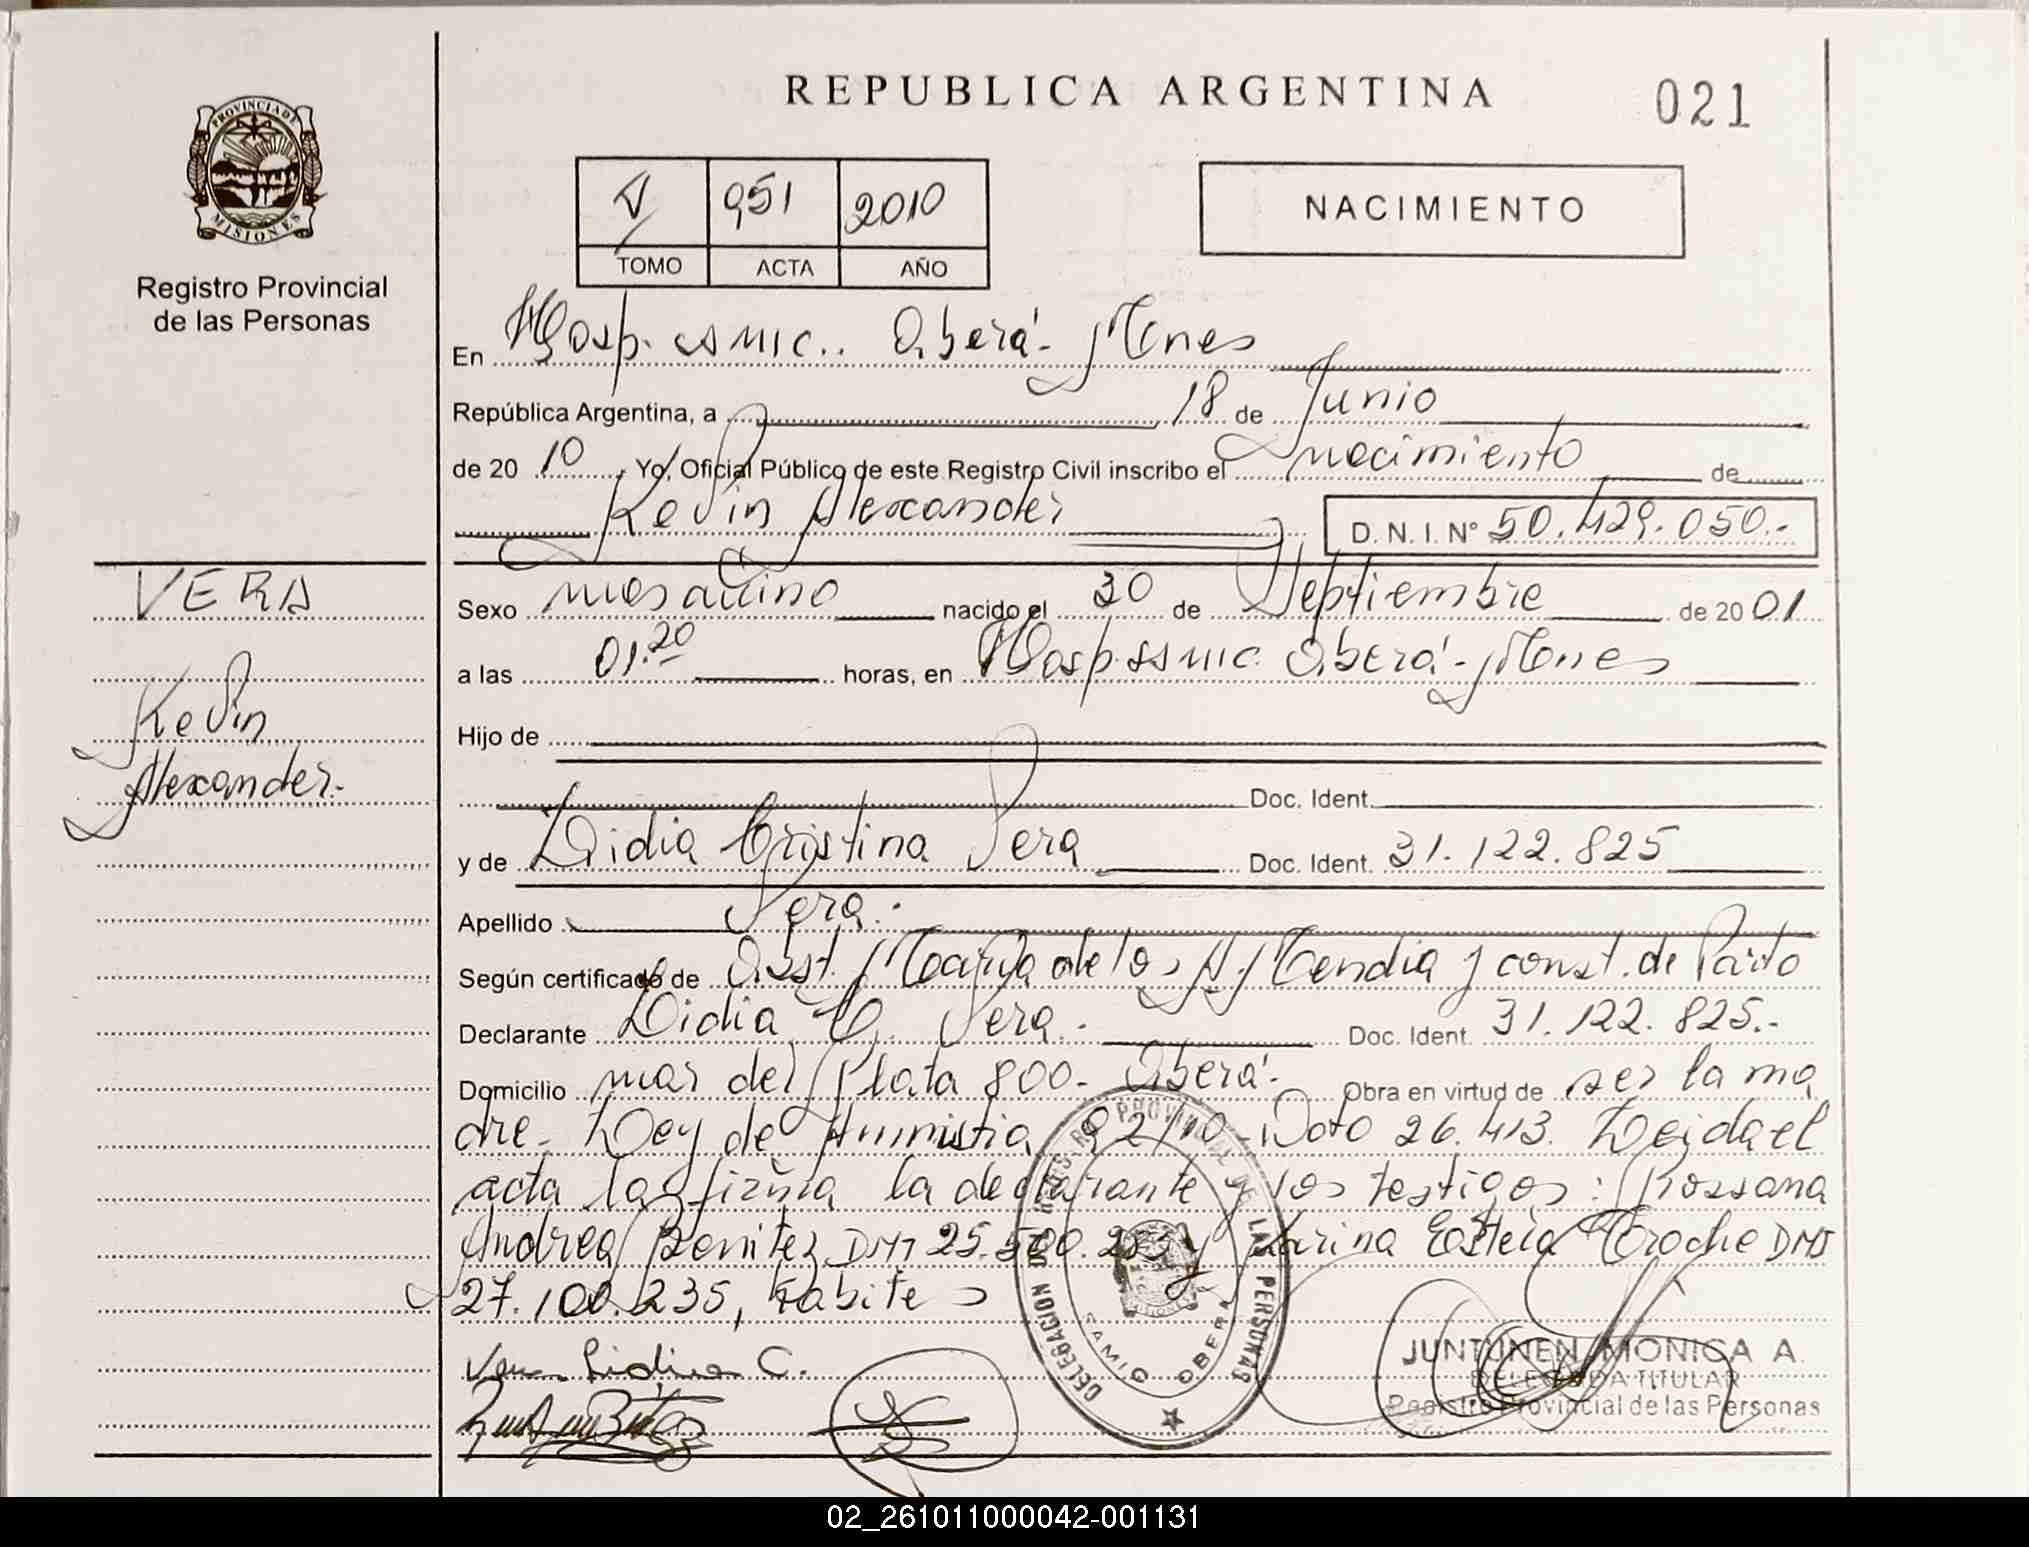 REPUBLICA ARGENTINA
021
PROVINCIA DE
MISIONES
Registro Provincial
de las Personas
V 951 2010
TOMO ACTA AÑO
NACIMIENTO
En Hosp. SAMIC.. Oberá - Mnes
República Argentina, a 18 de Junio
de 20 10, Yo, Oficial Público de este Registro Civil inscribo el nacimiento de
Kevin Alexander
D. N. I. N° 50.429.050.-
VERA
Kevin
Alexander.-
Sexo masculino nacido el 30 de Septiembre de 2001
a las 01.20 horas, en Hosp. SAMIC. Oberá - Mnes
Hijo de
Doc. Ident.
y de Lidia Cristina Vera Doc. Ident. 31.122.825
Apellido Vera.-
Según certificado de Obst. María de los A. Mendia y const. de Parto
Declarante Lidia C. Vera.- Doc. Ident. 31.122.825.-
Domicilio mar del Plata 800- Oberá.- Obra en virtud de ser la ma
dre. Ley de Amnistia 92/10 - Dcto 26.413. Leida el
acta la firma la declarante y los testigos: Rossana
Andrea Benitez DNI 25.500. y Karina Estela DNI
27.100.235, habiles
Vera Lidia C.
DELEGACION DEL REGISTRO PROVINCIAL DE LAS PERSONAS
SAMIC OBERA
JUNTUNEN MONICA A.
DELEGADA TITULAR
Registro Provincial de las Personas
02_261011000042-001131